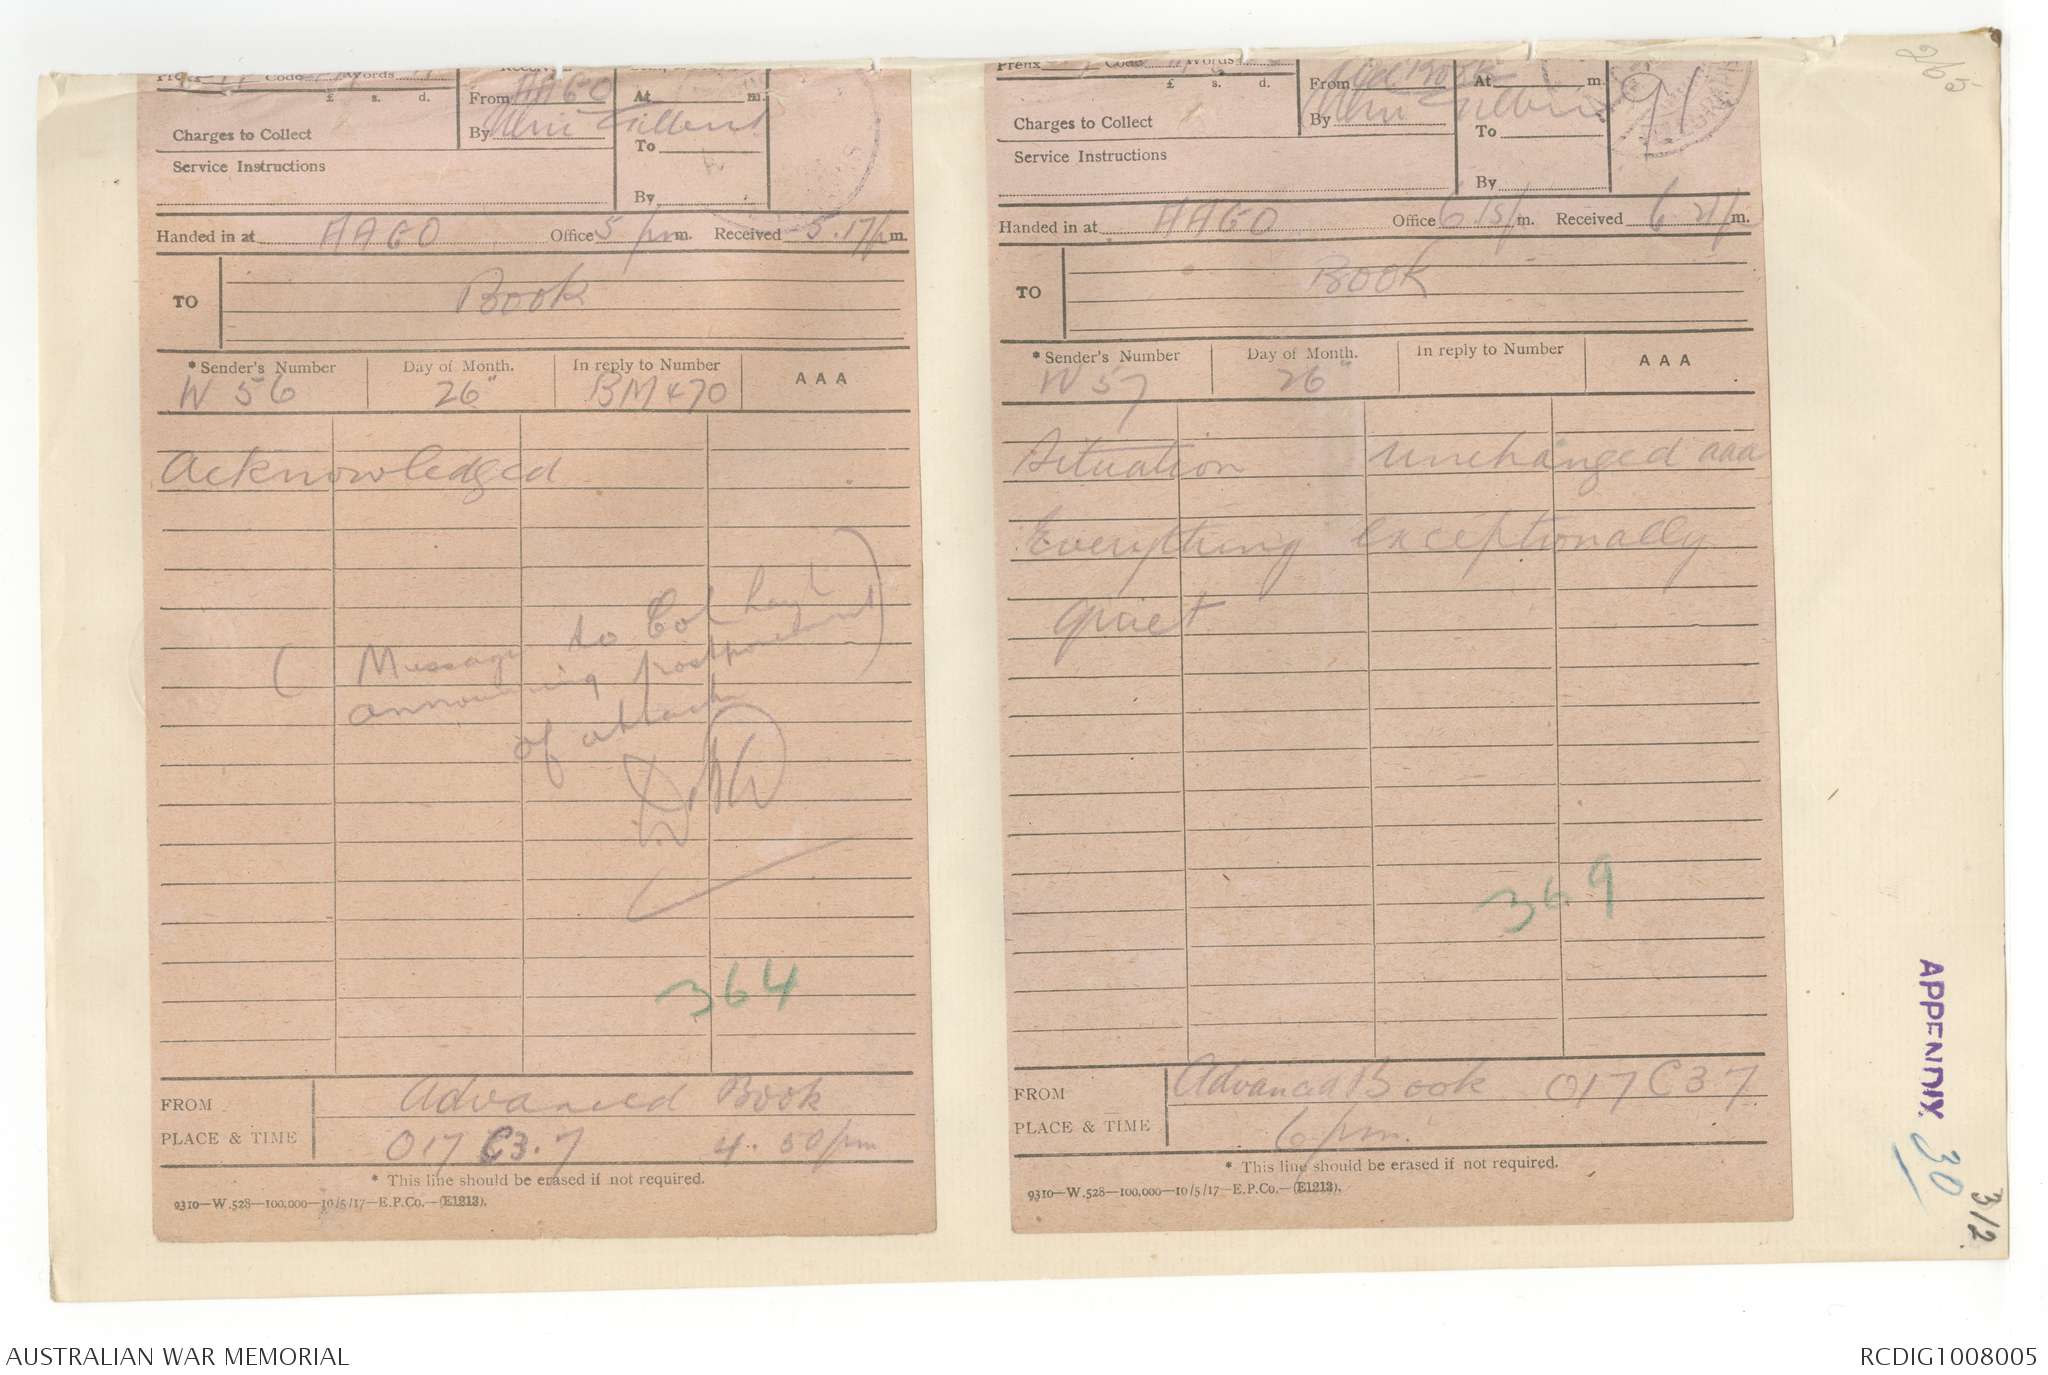 Prefix Code Words
£ s. d.
Charges to Collect
Service Instructions
From AAGO
By
At m.
To
By
Handed in at AAGO Office 5 pm m. Received 5.17 p m.
TO Book
*Sender's Number Day of Month. In reply to Number AAA
W 56 26" BM 470
Acknowledged
( Message to Col
announcing postponement )
of attack
364
FROM Advanced Book
PLACE & TIME O17 C3.7 4.50pm
* This line should be erased if not required.
9310—W.528—100,000—10/5/17—E.P.Co.—(E1213).
Prefix Code Words
£ s. d.
Charges to Collect
Service Instructions
From Book
By
At m.
To
By
91
Handed in at AAGO Office 6.15 p m. Received 6.21 p m.
TO Book
*Sender's Number Day of Month. In reply to Number AAA
W 57 26"
Situation unchanged aaa
Everything exceptionally
quiet
369
FROM Advanced Book O17 C37
PLACE & TIME 6 pm.
* This line should be erased if not required.
9310—W.528—100,000—10/5/17—E.P.Co.—(E1213).
265
APPENDIX 30
312
AUSTRALIAN WAR MEMORIAL
RCDIG1008005